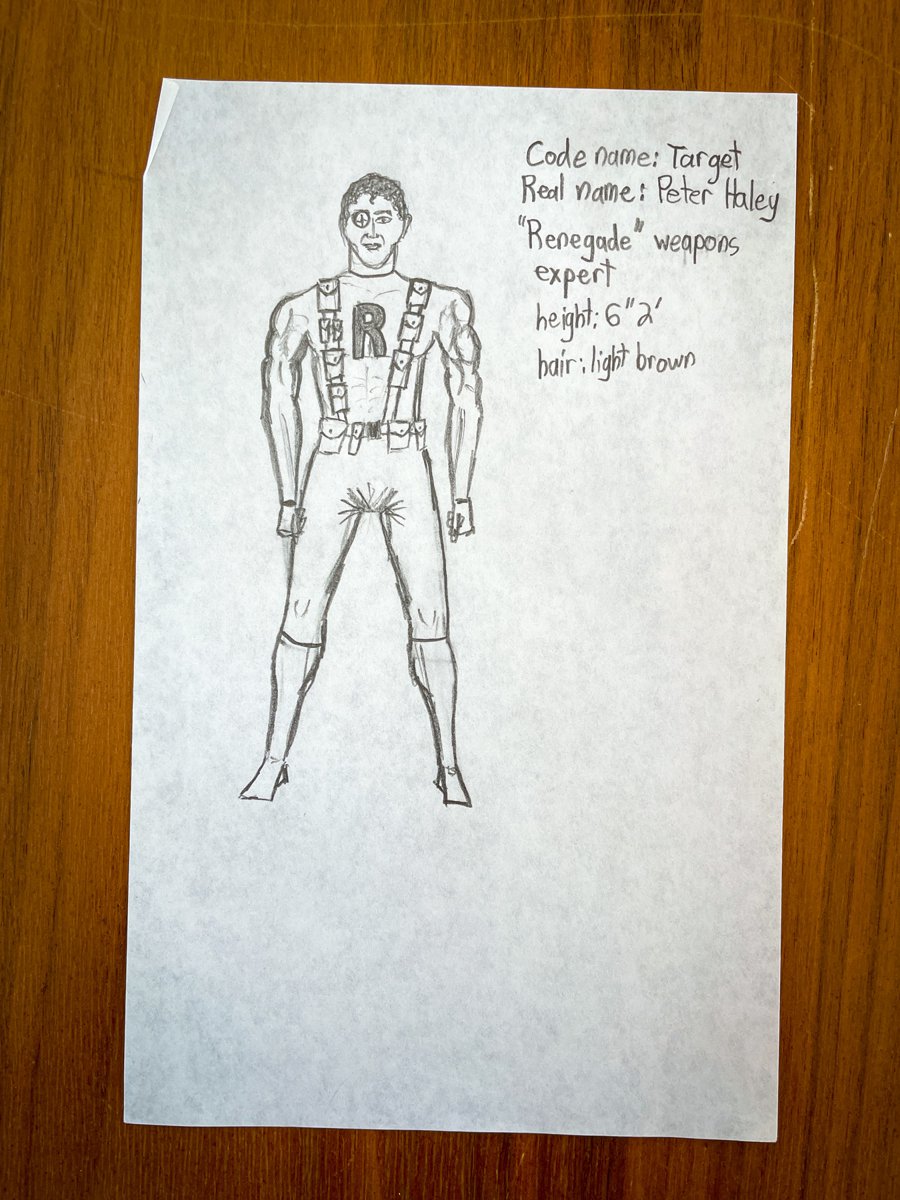 Code name: Target
Real name: Peter Haley
"Renegade" weapons
expert
height: 6"2'
hair: light brown
R